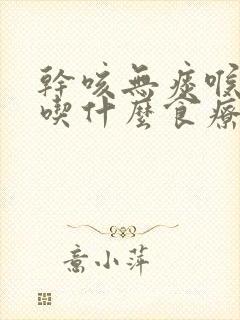 幹咳無痰喉
喫什麼食療
喬小萍